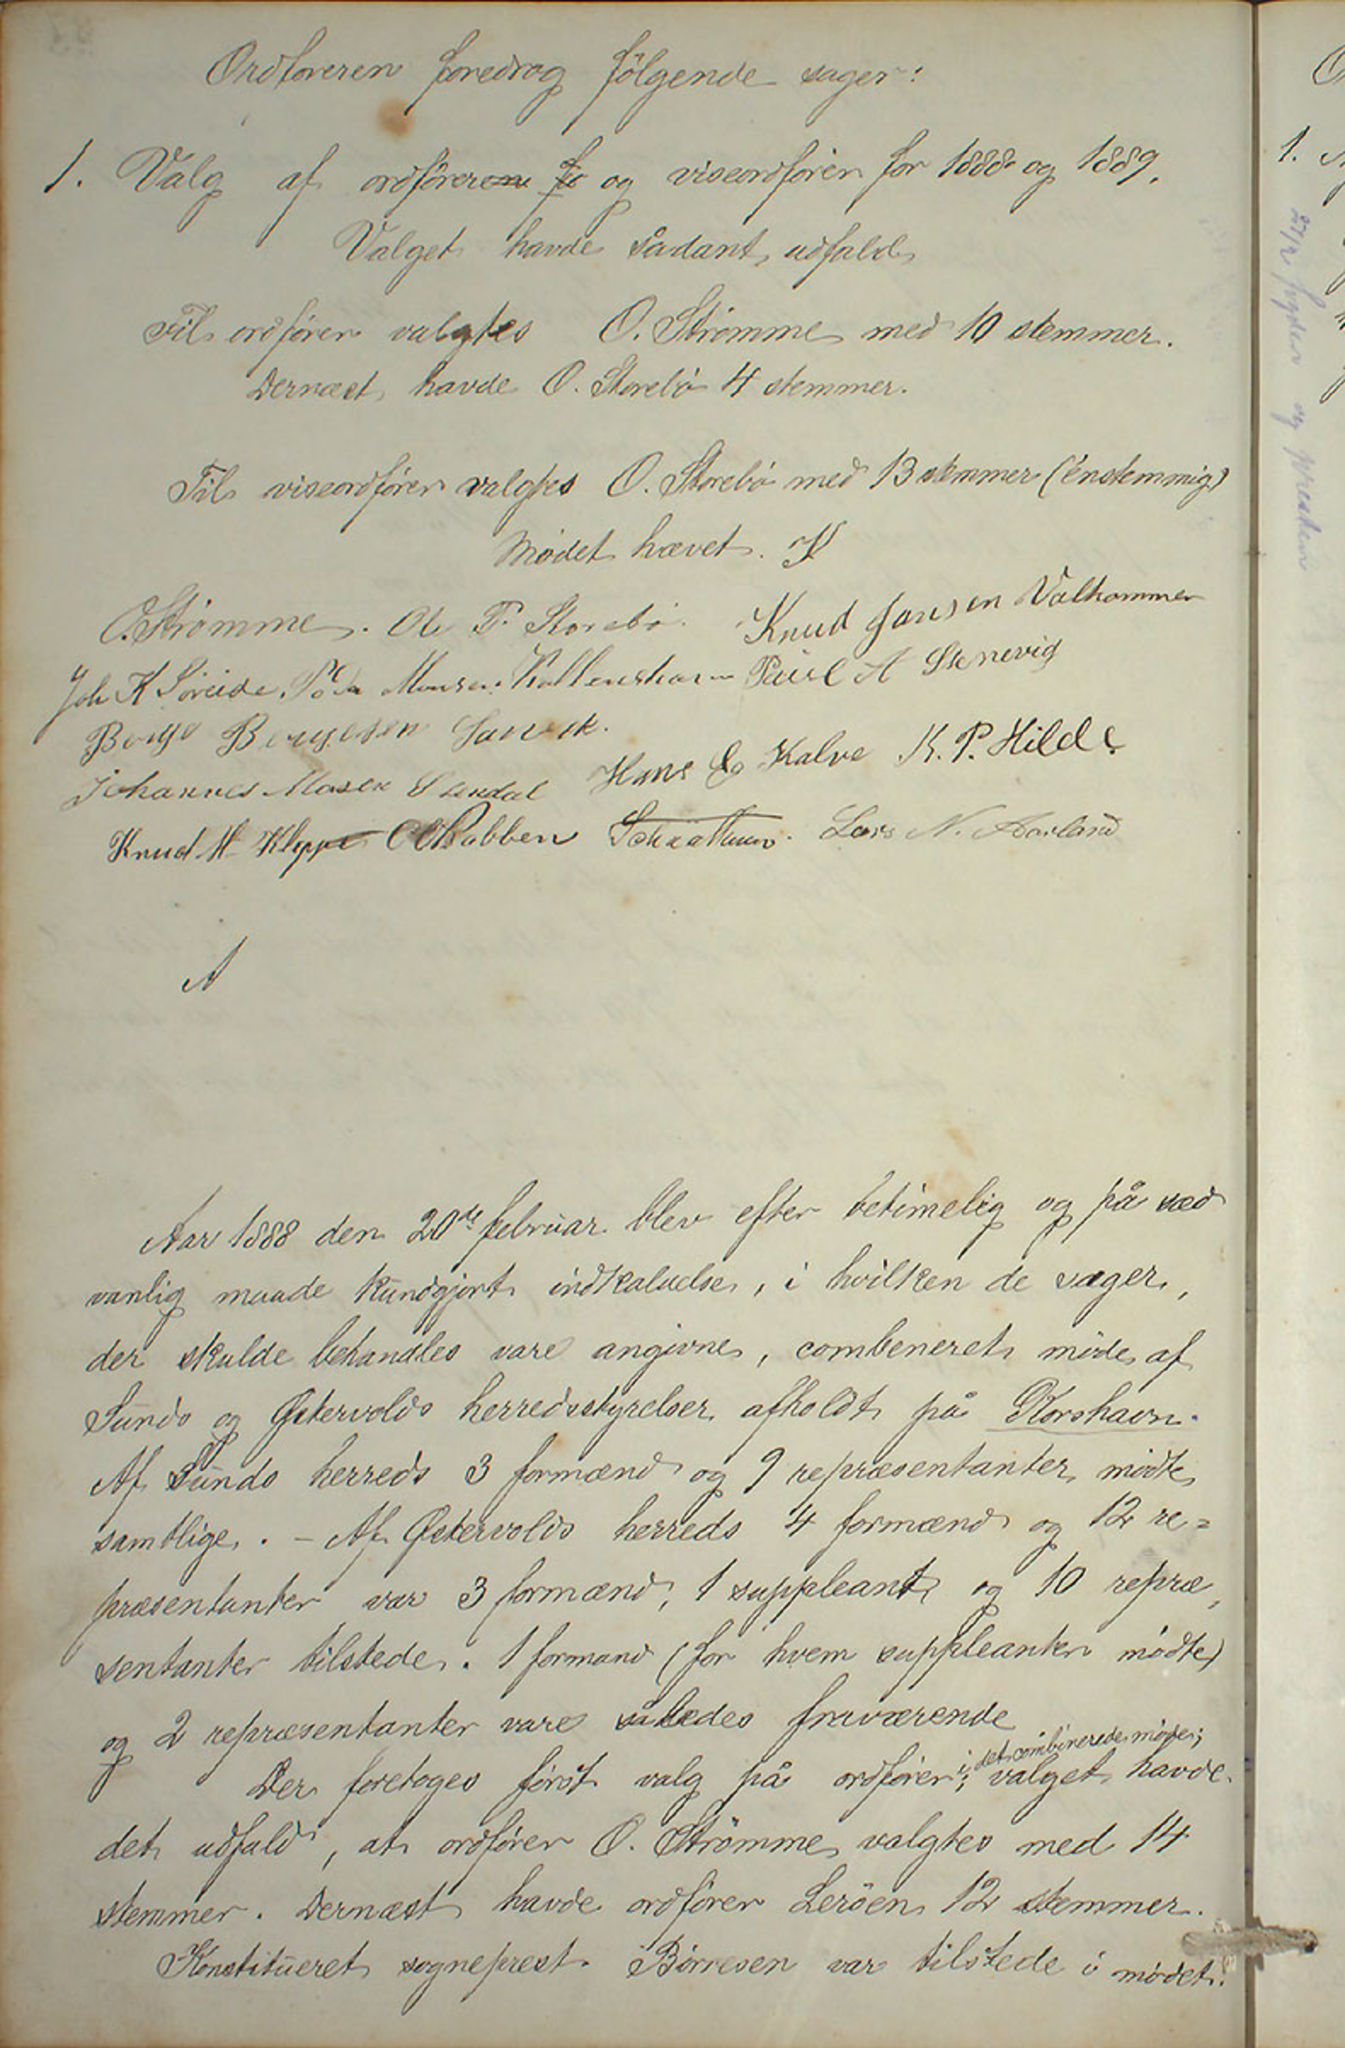 Ordføreren foredrog følgende sager:
1. Valg af ordføreren fo og viseordfører for 1888 og 1889.
Valget havde sådant udfald,
Til ordfører valgtes O. Strømme med 10 stemmer.
Dernæst havde O. Storebø 4 stemmer.
Til viseordfører valgtes O. Storebø med 13 stemmer (énstemmig)
Mødet hævet.
O. Strømme. Ole P. Storebø. Knud Jansen Valhammer
Joh K Søreide. Monsen Paul A Stenevig
Børge Børgesen
Johannes Mosen Hans Kalve K. P. Hilde
Knud M Kleppe Lars N. Aarland
A
Aar 1888 den 20de februar blev efter betimelig og på sæd
vanlig maade kundgjort indkaldelse, i hvilken de sager,
der skulde behandles vare angivne, combeneret møde af
Sunds og Østervolds herredsstyrelser afholdt på Korshavn.
Af Sunds herreds 3 formænd og 9 repræsentanter mødte
samtlige. - Af Østervolds herreds 4 formænd og 12 re=
præsentanter var 3 formænd, 1 suppleant og 10 repræ,
sentanter tilstede. 1 formand (for hvem suppleanten mødte)
og 2 repræsentanter vare således fraværende
i det combinerede møde;
Der foretoges først valg på ordfører; valget havde
det udfald, at ordfører O. Strømme valgtes med 14
stemmer. Dernæst havde ordfører Lerøen 12 stemmer.
Konstitueret sogneprest Børresen var tilstede i mødet.
1.
og presten